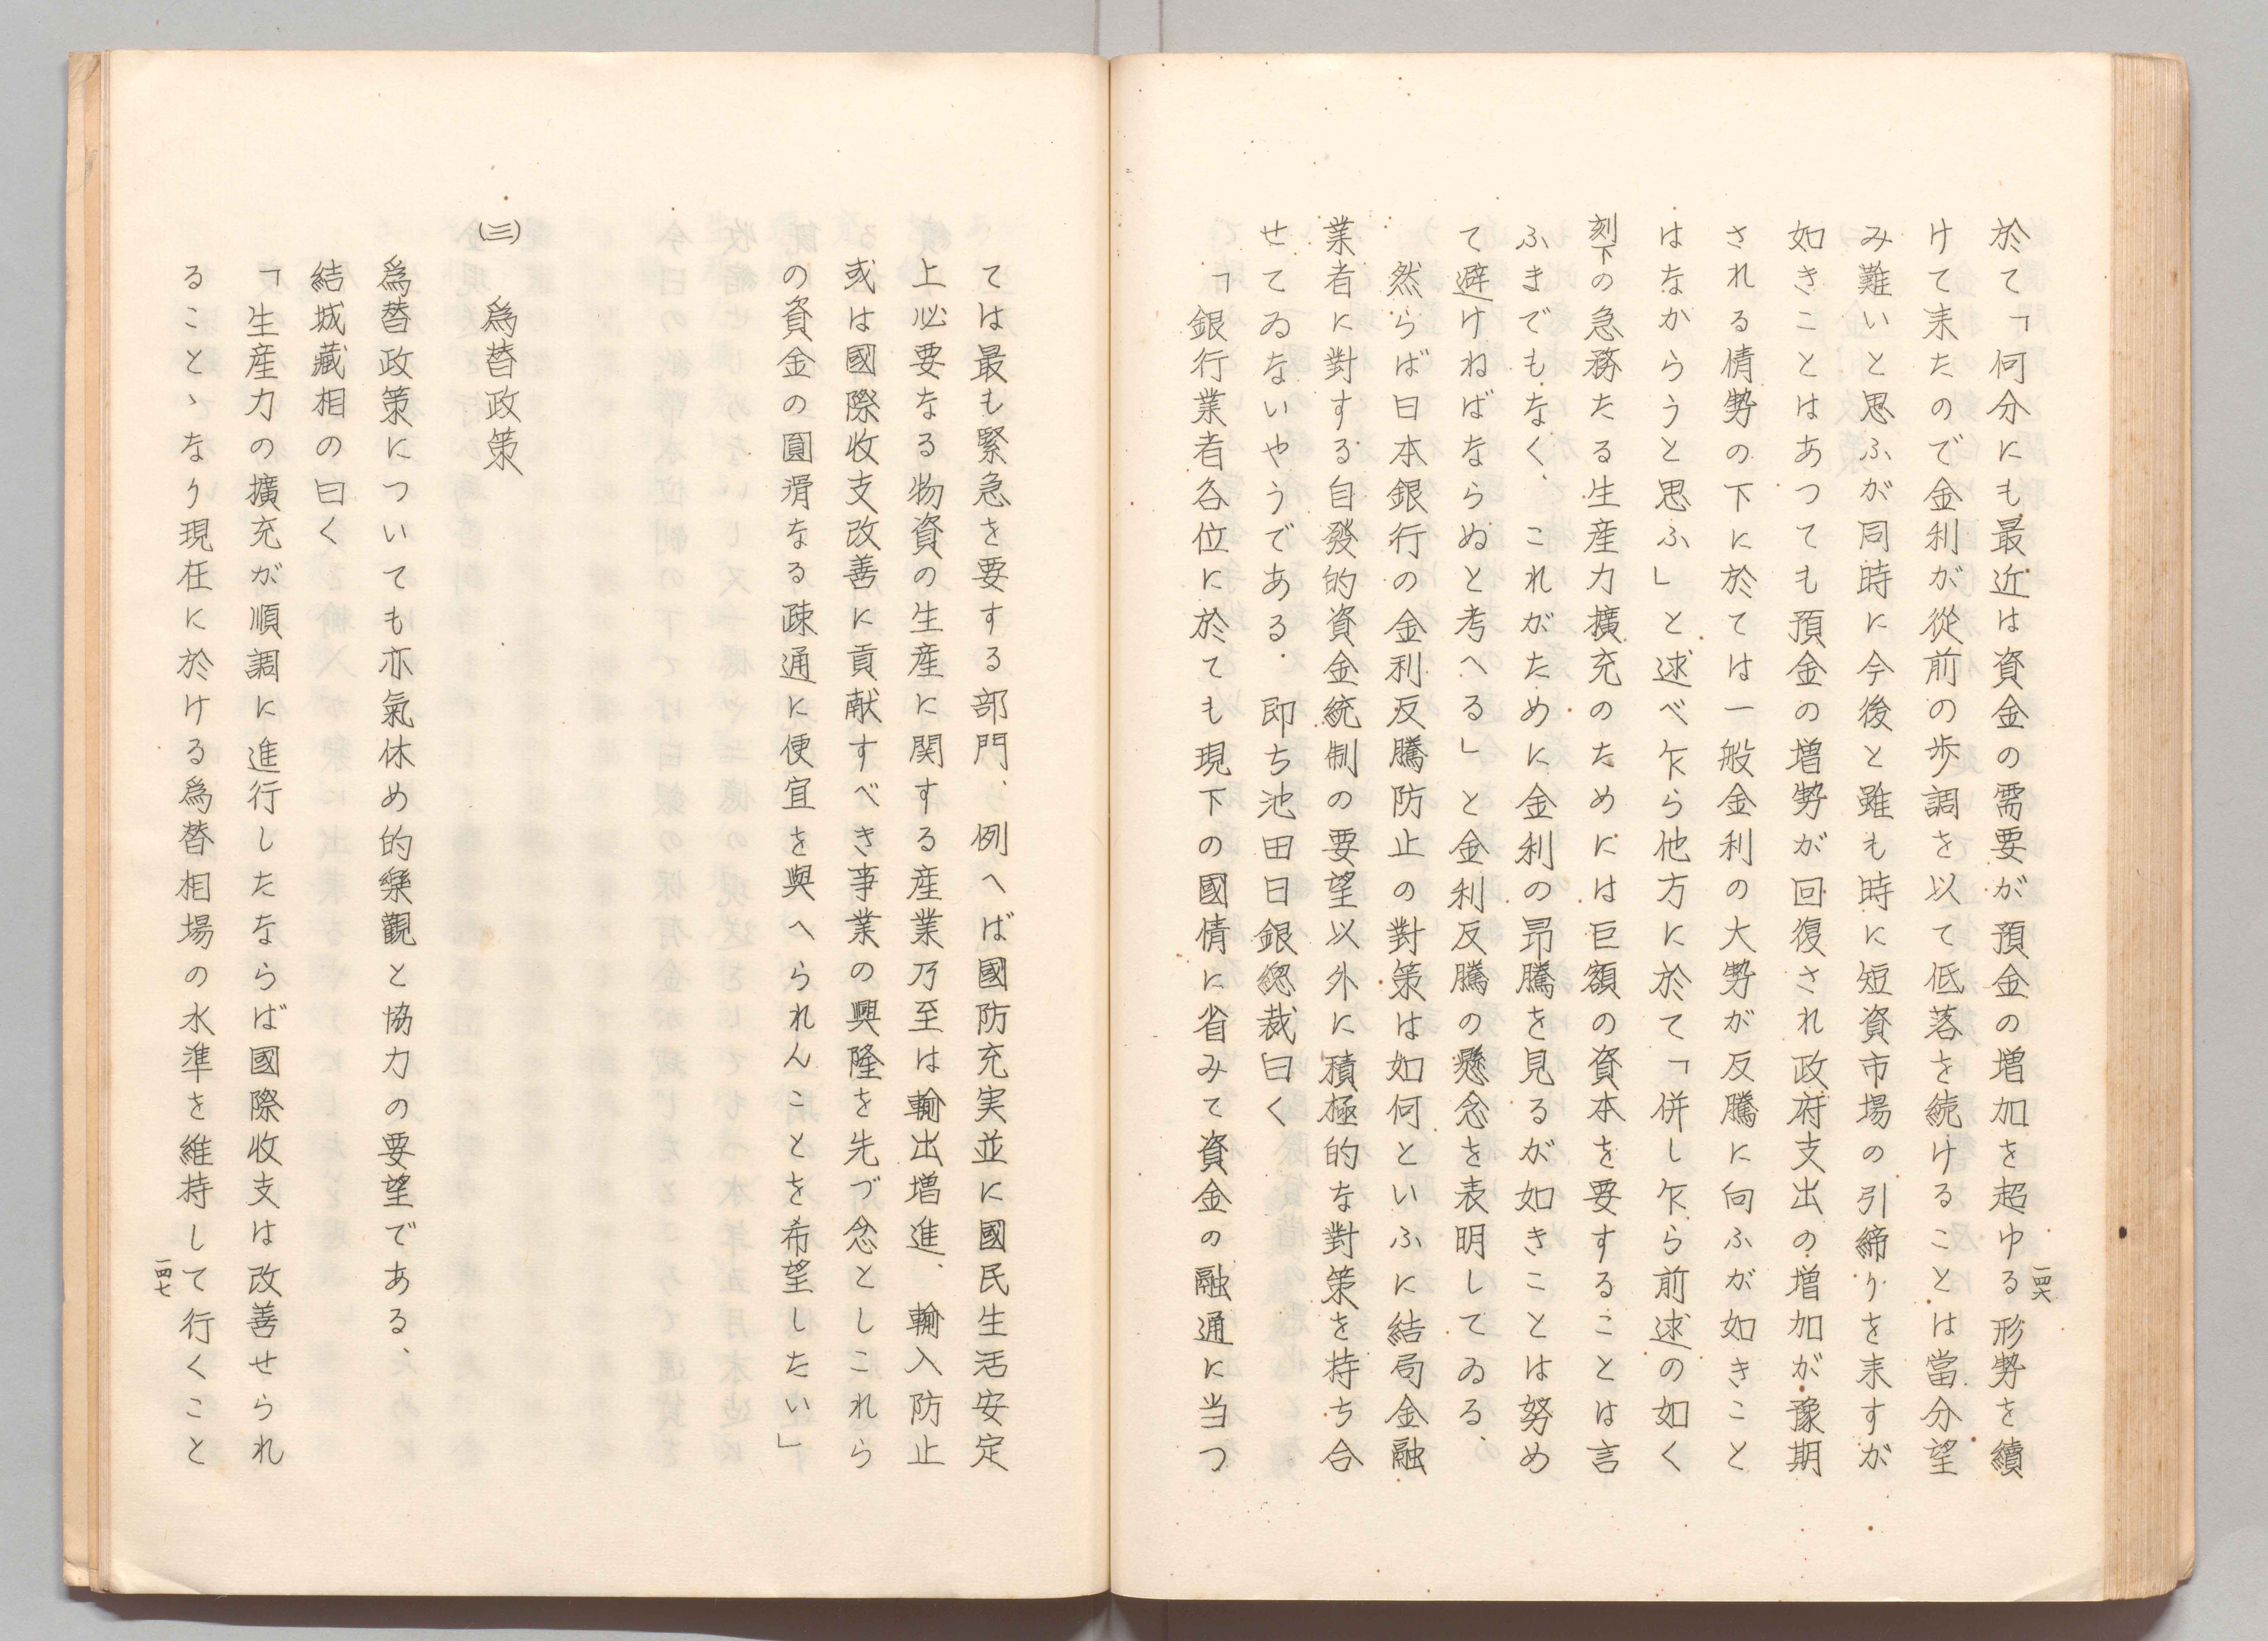 一四六
於て「何分にも最近は資金の需要が預金の増加を超ゆる形勢を續
けて来たので金利が從前の歩調を以て低落を続けることは當分望
み難いと思ふが同時に今後と雖も時に短資市場の引締りを来すが
如きことはあつても預金の増勢が回復され政府支出の増加が豫期
される情勢の下に於ては一般金利の大勢が反騰に向ふが如きこと
はなからうと思ふ」と述べ乍ら他方に於て「併し乍ら前述の如く
刻下の急務たる生産力擴充のためには巨額の資本を要することは言
ふまでもなく、これがために金利の昂騰を見るが如きことは努め
て避けねばならぬと考へる」と金利反騰の懸念を表明してゐる、
然らば日本銀行の金利反騰防止の對策は如何といふに結局金融
業者に對する自發的資金統制の要望以外に積極的な對策を持ち合
せてゐないやうである、即ち池田日銀總裁曰く
「銀行業者各位に於ても現下の國情に省みて資金の融通に当つ
ては最も緊急を要する部門、例へば國防充実並に國民生活安定
上必要なる物資の生産に関する産業乃至は輸出増進、輸入防止
或は國際收支改善に貢献すべき事業の興隆を先づ念としこれら
の資金の圓滑なる疎通に便宜を與へられんことを希望したい」
(三) 爲替政策
爲替政策についても亦氣休め的樂觀と協力の要望である、
結城藏相の曰く
「生産力の擴充が順調に進行したならば國際收支は改善せられ
ることゝなり現在に於ける爲替相場の水準を維持して行くこと
一四七